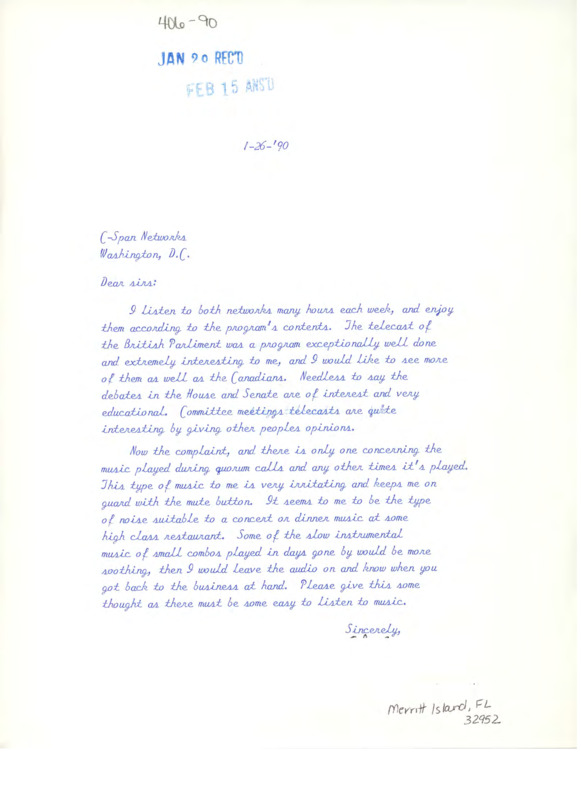 406-90
JAN 20 REC'D
FEB 15 ANS'D
1-26-'90
C-Span Networks
Washington, D.C.
Dear sirs:
I listen to both networks many hours each week, and enjoy
them according to the program's contents. The telecast of
the British Parliment was a program exceptionally well done
and extremely interesting to me, and I would like to see more
of them as well as the Canadians. Needless to say the
debates in the House and Senate are of interest and very
educational. Committee meetings telecasts are quite
interesting by giving other peoples opinions.
Now the complaint, and there is only one concerning the
music played during quorum calls and any other times it's played.
This type of music to me is very irritating and keeps me on
guard with the mute button. It seems to me to be the type
of noise suitable to a concert or dinner music at some
high class restaurant. Some of the slow instrumental
music of small combos played in days gone by would be more
soothing, then I would leave the audio on and know when you
got back to the business at hand. Please give this some
thought as there must be some easy to listen to music.
Sincerely,
Merritt Island, FL
32952